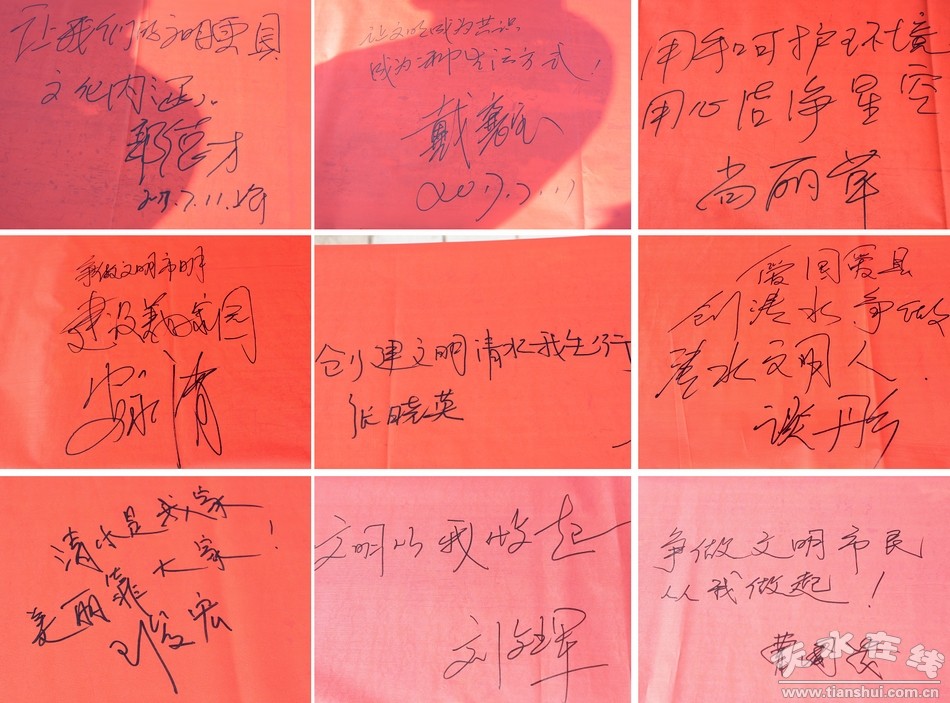 让我们的文明更具
文化内涵。
郭
让文明成为共识
成为一种生活方式！
戴
2017.7.11
用手呵护环境
用心洁净星空
尚丽华
争做文明市民
建设美好家园
清
创建文明清水我先行
张晓英
爱国爱县
创清水争做
清水文明人.
谈丹
清水是我家
美丽靠大家！
邓宏
文明从我做起
刘军
争做文明市民
从我做起！
天水在线
www.tianshui.com.cn